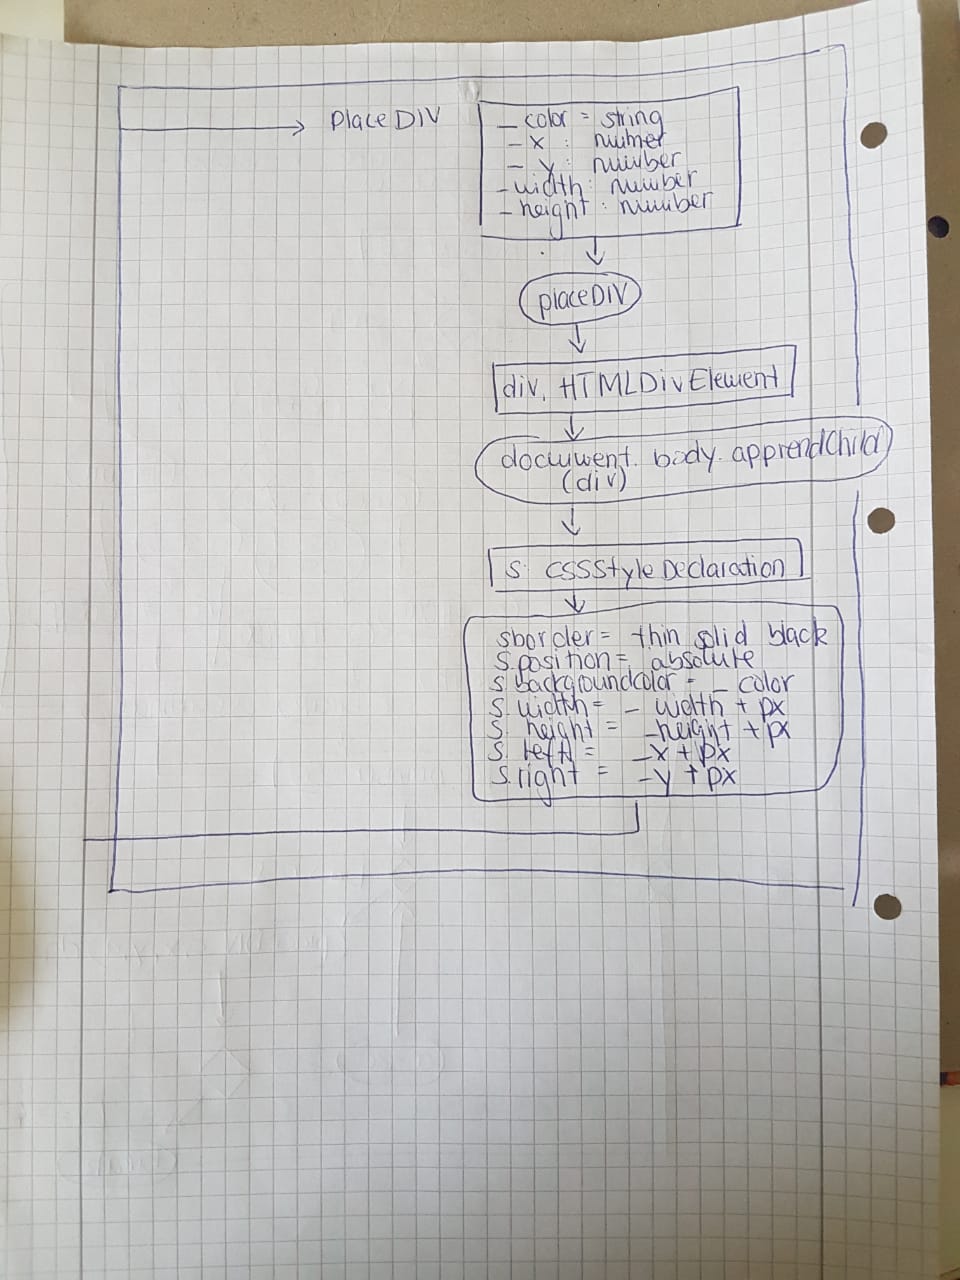 placeDIV
_ color = string
- x : numer
- y : number
- width : number
- height : number
placeDIV
div, HTMLDivElement
document. body. apprendChild
(div)
s: CSSStyleDeclaration
sborder = thin solid black
s.position = absolute
s.backgroundcolor = _ color
s. width = - width + px
s. height = -height + px
s. left = -x + px
s.right = -y + px